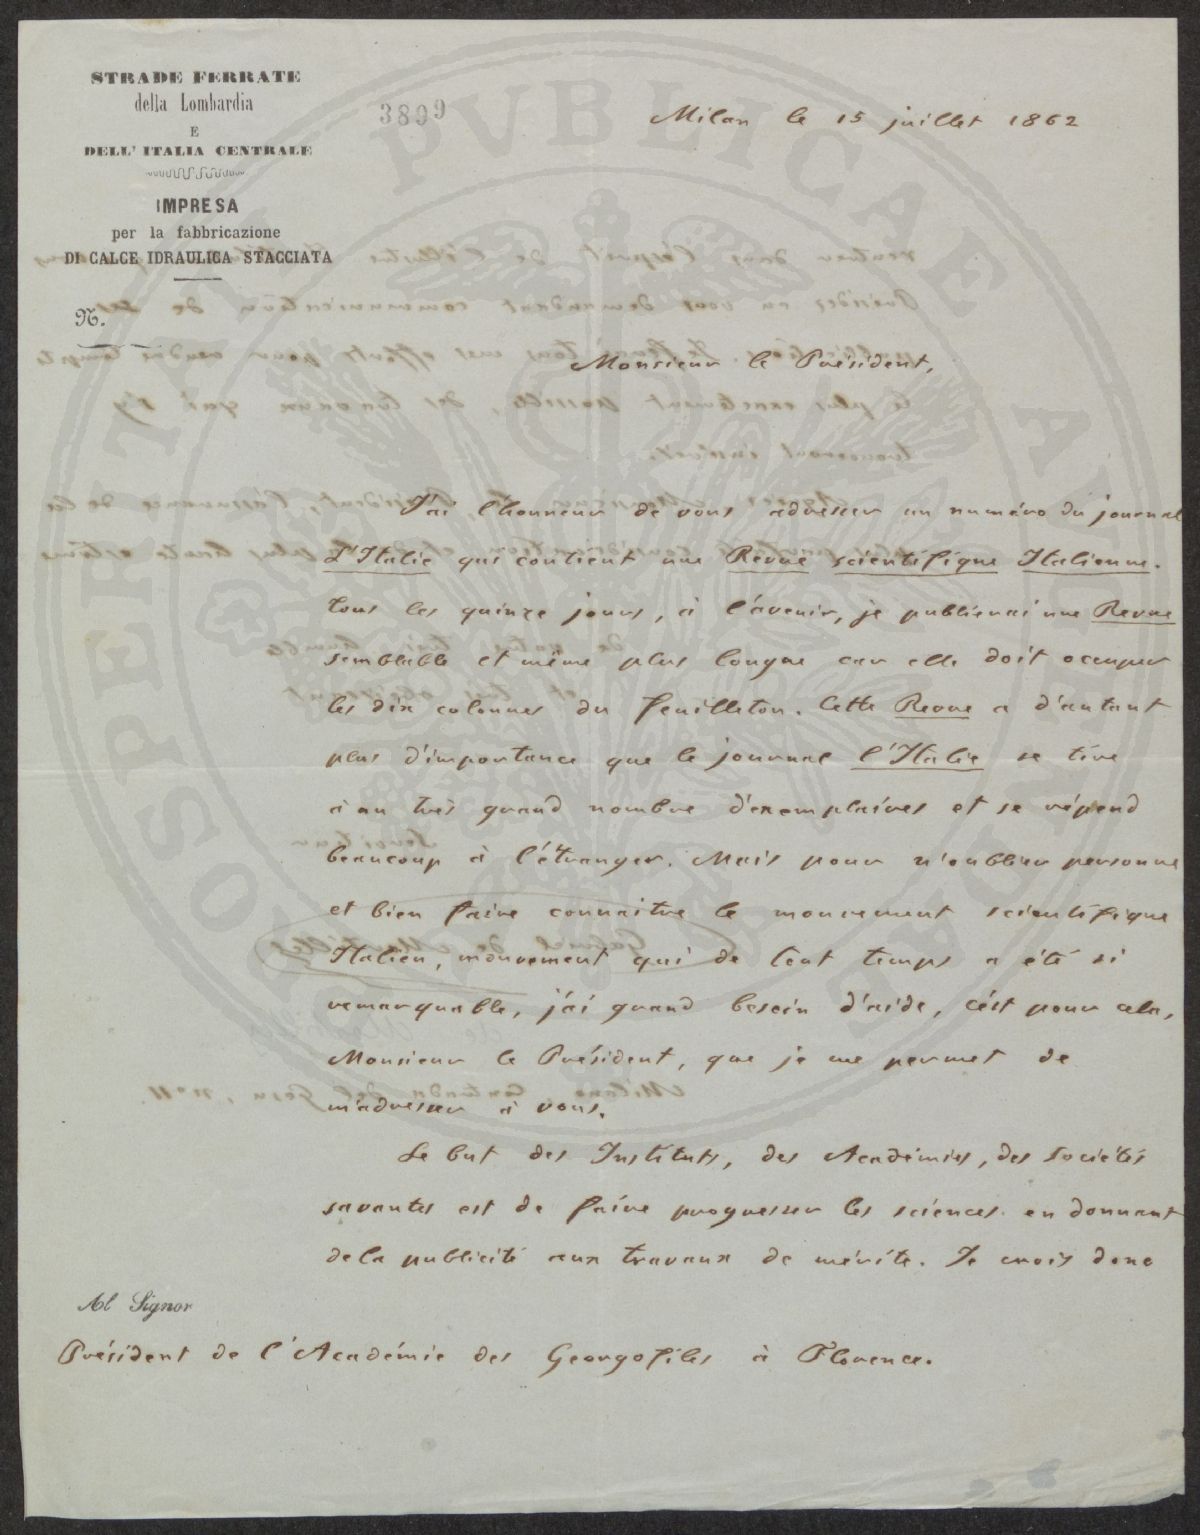 STRADE FERRATE
della Lombardia
E
DELL' ITALIA CENTRALE
IMPRESA
per la fabbricazione
DI CALCE IDRAULICA STACCIATA
N.
3809
Milan le 15 juillet 1862
Monsieur le Président,
J'ai l'honneur de vous adresser un numéro du journal
L'Italie qui contient une Revue scientifique Italienne.
Tous les quinze jours, à l'avenir, je publierai une Revue
semblable et même plus longue car elle doit occuper
les dix colonnes du feuilleton. Cette Revue a d'autant
plus d'importance que le journal l'Italie se tire
à un très grand nombre d'exemplaires et se répend
beaucoup à l'étranger. Mais pour n'oublier personne
et bien faire connaitre le mouvement scientifique
Italien, mouvement qui de tout temps a été si
remarquable, j'ai grand besoin d'aide, c'est pour cela,
Monsieur le Président, que je me permet de
m'adresser à vous.
Le but des Instituts, des Académies, des Sociétés
savantes est de faire progresser les sciences en donnant
de la publicité aux travaux de mérite. Je crois donc
Al Signor
Président de l'Académie des Georgofiles à Florence.